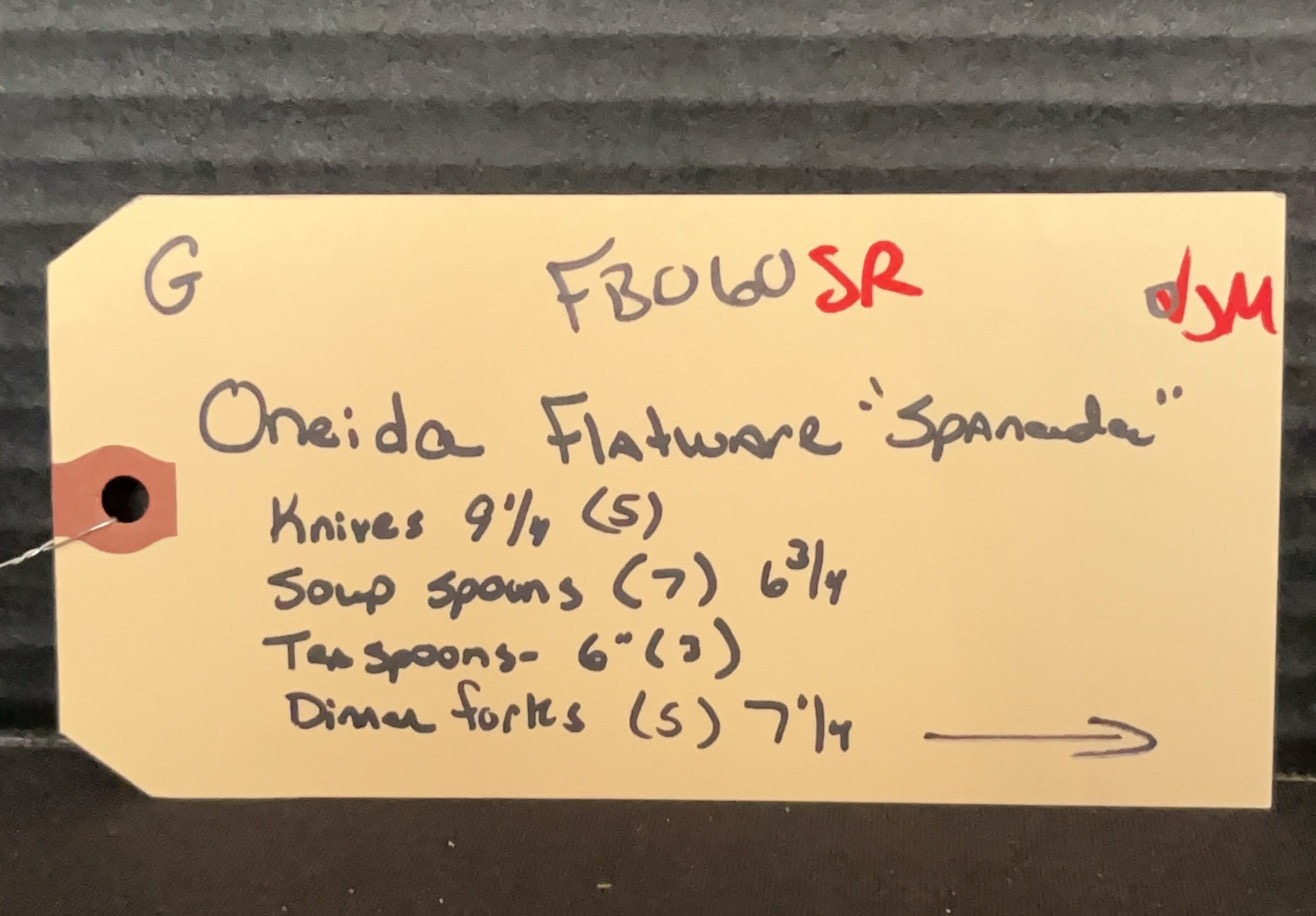 G FB060 SR √JM
Oneida Flatware "Spanada"
Knives 9 1/4 (5)
Soup spoons (7) 6 3/4
Teaspoons- 6" (3)
Dinner forks (5) 7 1/4 →